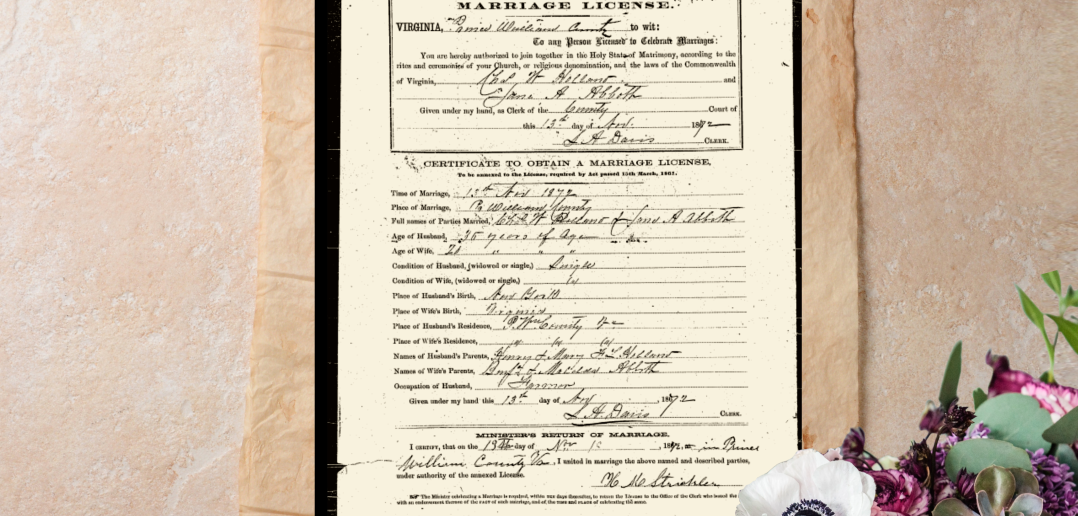 MARRIAGE LICENSE.
VIRGINIA, Prince William County to wit:
To any Person Licensed to Celebrate Marriages:
You are hereby authorized to join together in the Holy State of Matrimony, according to the
rites and ceremonies of your Church, or religious denomination, and the laws of the Commonwealth
of Virginia, Chs W Holland and
Jane A Abbott
Given under my hand, as Clerk of the County Court of
this 13th day of Nov. 1872
L A Davis CLERK.
CERTIFICATE TO OBTAIN A MARRIAGE LICENSE,
To be annexed to the License, required by Act passed 15th March, 1861.
Time of Marriage, 13th Nov 1872
Place of Marriage, Pr William County
Full names of Parties Married, Chs W Holland & Jane A Abbott
Age of Husband, 35 years of Age
Age of Wife, 21 " " "
Condition of Husband, (widowed or single,) Single
Condition of Wife, (widowed or single,)
Place of Husband's Birth, New York
Place of Wife's Birth, Virginia
Place of Husband's Residence, P Wm County Va
Place of Wife's Residence,
Names of Husband's Parents, Henry & Mary Holland
Names of Wife's Parents, & Matilda Abbott
Occupation of Husband, Farmer
Given under my hand this 13th day of Nov , 1872
L. A. Davis CLERK.
MINISTER'S RETURN OF MARRIAGE.
I CERTIFY, that on the 13th day of Nov , 1872. in Prince
William County Va , I united in marriage the above named and described parties,
under authority of the annexed License.
H M Strickler
The Minister celebrating a Marriage is required, within TEN days thereafter, to return the License to the Office of the Clerk who issued the
with an endorsement thereon of the FACT of such marriage, and of the TIME and PLACE of celebrating the same.